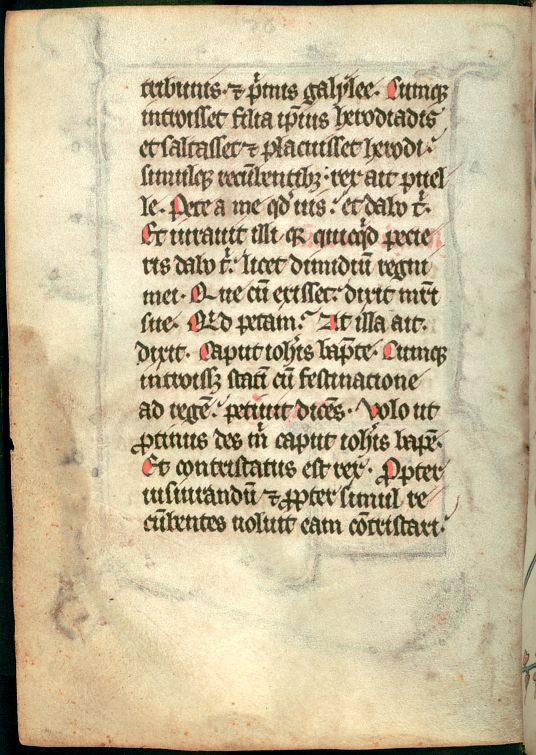 tribunis · ⁊ p̃mis galylee · Cumq3
introisset filia ip̃ius herodiadis
et saltasset ⁊ placuisset herodi ·
simulq3 recũbentib3 · rex ait puel
le · Pete a me qd̾ uis · et dabo t̾ ·
Et iurauit illi · qꝛ quicq̾d pecie
ris dabo t̾ · licet dimidiũ regni
mei · Que cũ exisset · dixit mr̃i
sue · Qid petam · At illa ait ·
dixit · Caput ioh̾is bap̃te · Cumq3
introiss3 stati cũ festinatione
ad regẽ · petiuit dicẽs · Volo ut
ꝓtinus des m̃ caput ioh̾is bap̃e ·
Et contristatus est rex · Ꝓpter
iusiurandũ ⁊ ꝓpter simul re
cũbentes noluit eam cõtristari ·